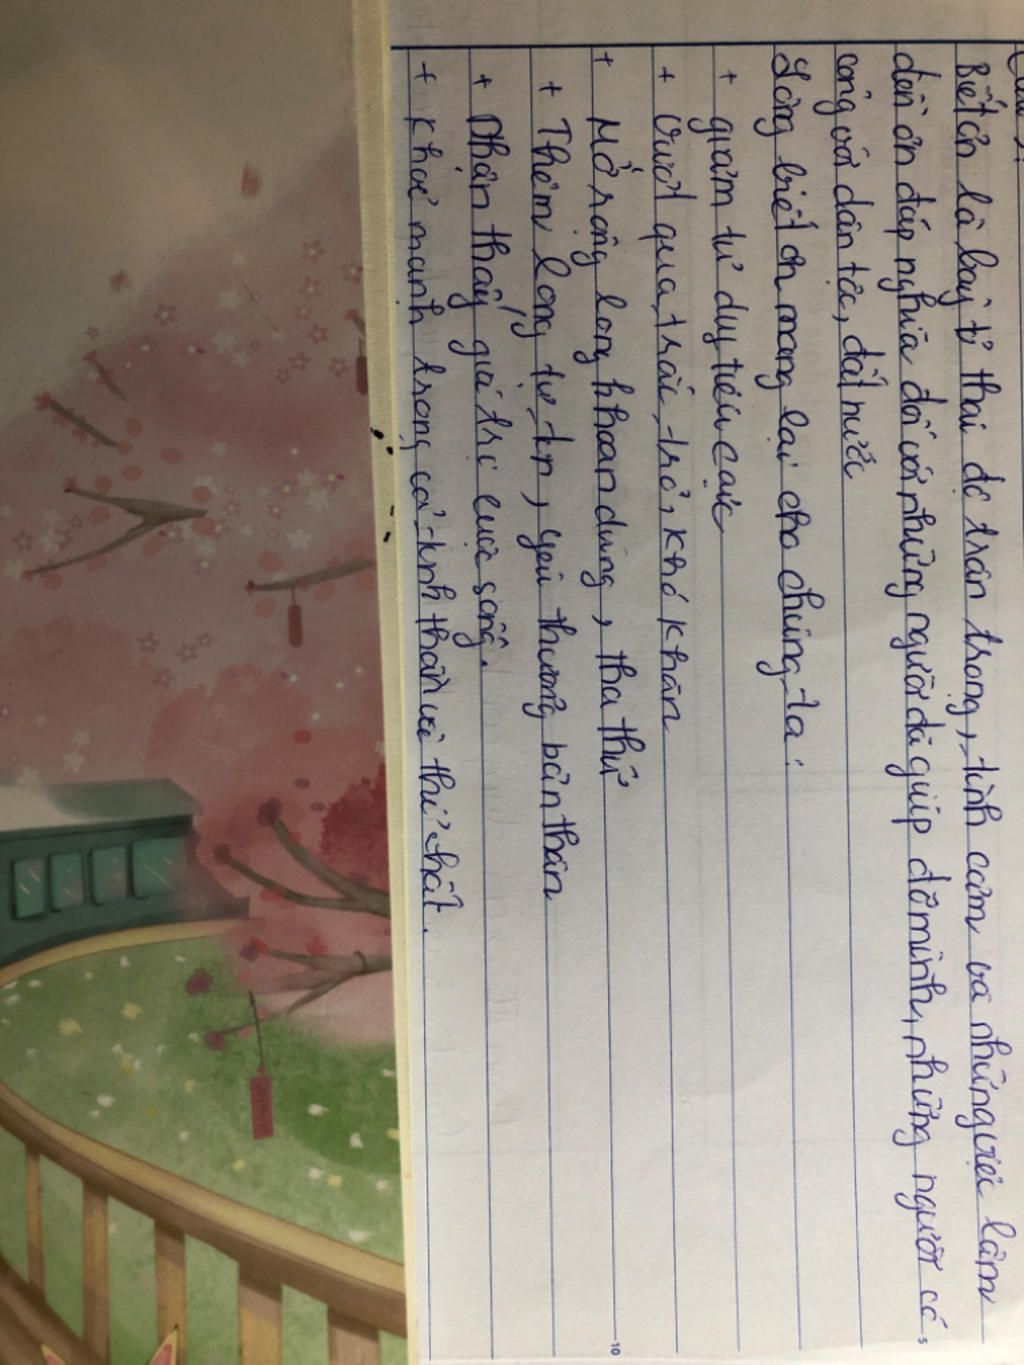 Biết ơn là bày tỏ thái độ trân trọng, tình cảm và những việc làm
đền ơn đáp nghĩa đối với những người đã giúp đỡ mình, những người có
công với dân tộc, đất nước
Lòng biết ơn mang lại cho chúng ta:
+ giảm tư duy tiêu cực
+ Vượt qua trắc trở, khó khăn
+ Mở rộng lòng khoan dung, tha thứ
+ Thêm lòng tự tin, yêu thương bản thân
+ Nhận thấy giá trị cuộc sống.
+ Khoẻ mạnh trong cả tinh thần và thể chất.
5
10